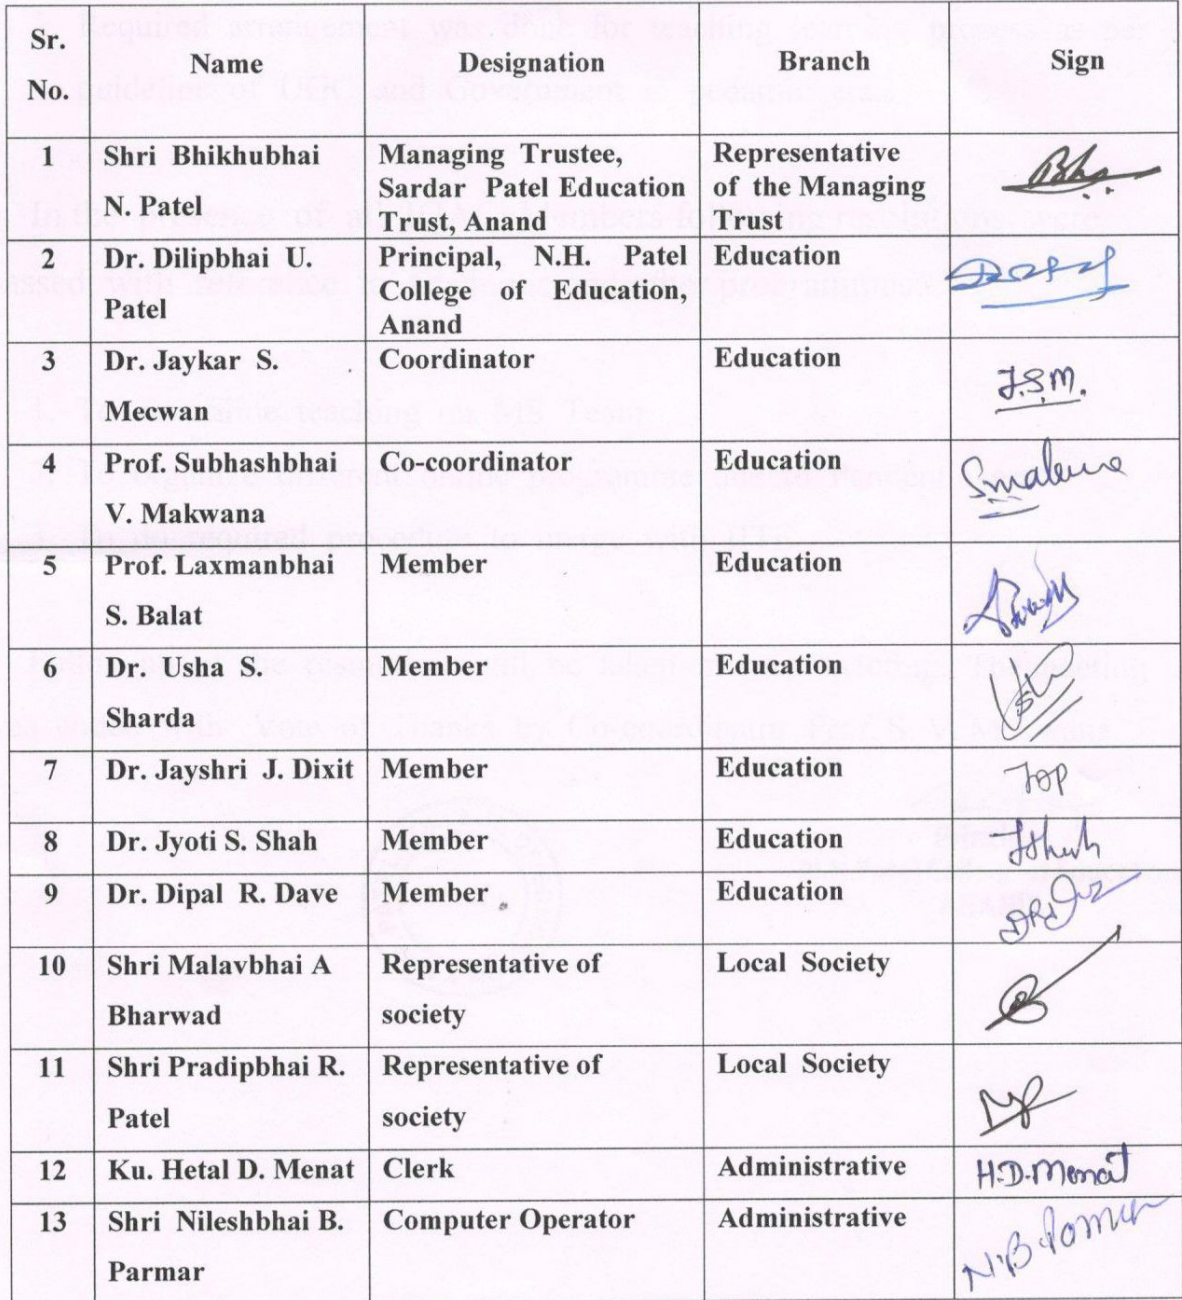 Sr. No. Name Designation Branch Sign
1 Shri Bhikhubhai N. Patel Managing Trustee, Sardar Patel Education Trust, Anand Representative of the Managing Trust
2 Dr. Dilipbhai U. Patel Principal, N.H. Patel College of Education, Anand Education
3 Dr. Jaykar S. Mecwan Coordinator Education J.S.M.
4 Prof. Subhashbhai V. Makwana Co-coordinator Education
5 Prof. Laxmanbhai S. Balat Member Education
6 Dr. Usha S. Sharda Member Education
7 Dr. Jayshri J. Dixit Member Education
8 Dr. Jyoti S. Shah Member Education
9 Dr. Dipal R. Dave Member Education
10 Shri Malavbhai A Bharwad Representative of society Local Society
11 Shri Pradipbhai R. Patel Representative of society Local Society
12 Ku. Hetal D. Menat Clerk Administrative H.D.Menat
13 Shri Nileshbhai B. Parmar Computer Operator Administrative